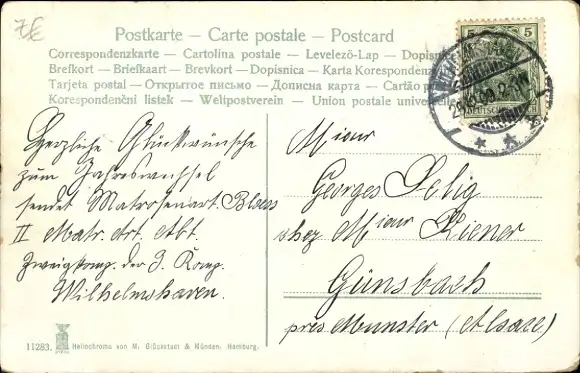 7€
Postkarte – Carte postale – Postcard
Correspondenzkarte – Cartolina postale – Levelező-Lap – Dopisn
Brefkort – Briefkaart – Brevkort – Dopisnica – Karta Korespondenc
Tarjeta postal – Открытое письмо – Дописна карта – Cartão p
Korespondenční listek – Weltpostverein – Union postale universelle
5 5
Herzliche Glückwünsche
zum Jahreswechsel
sendet Matrosenart. Bloess
II Matr. Art. Abt.
Zweigkomp. der 3. Komp.
Wilhelmshaven.
Mieur
Georges
chez Mieur Kiener
Günsbach
près Munster (Alsace)
11283. Heliochrome von M. Glückstadt & Münden, Hamburg.